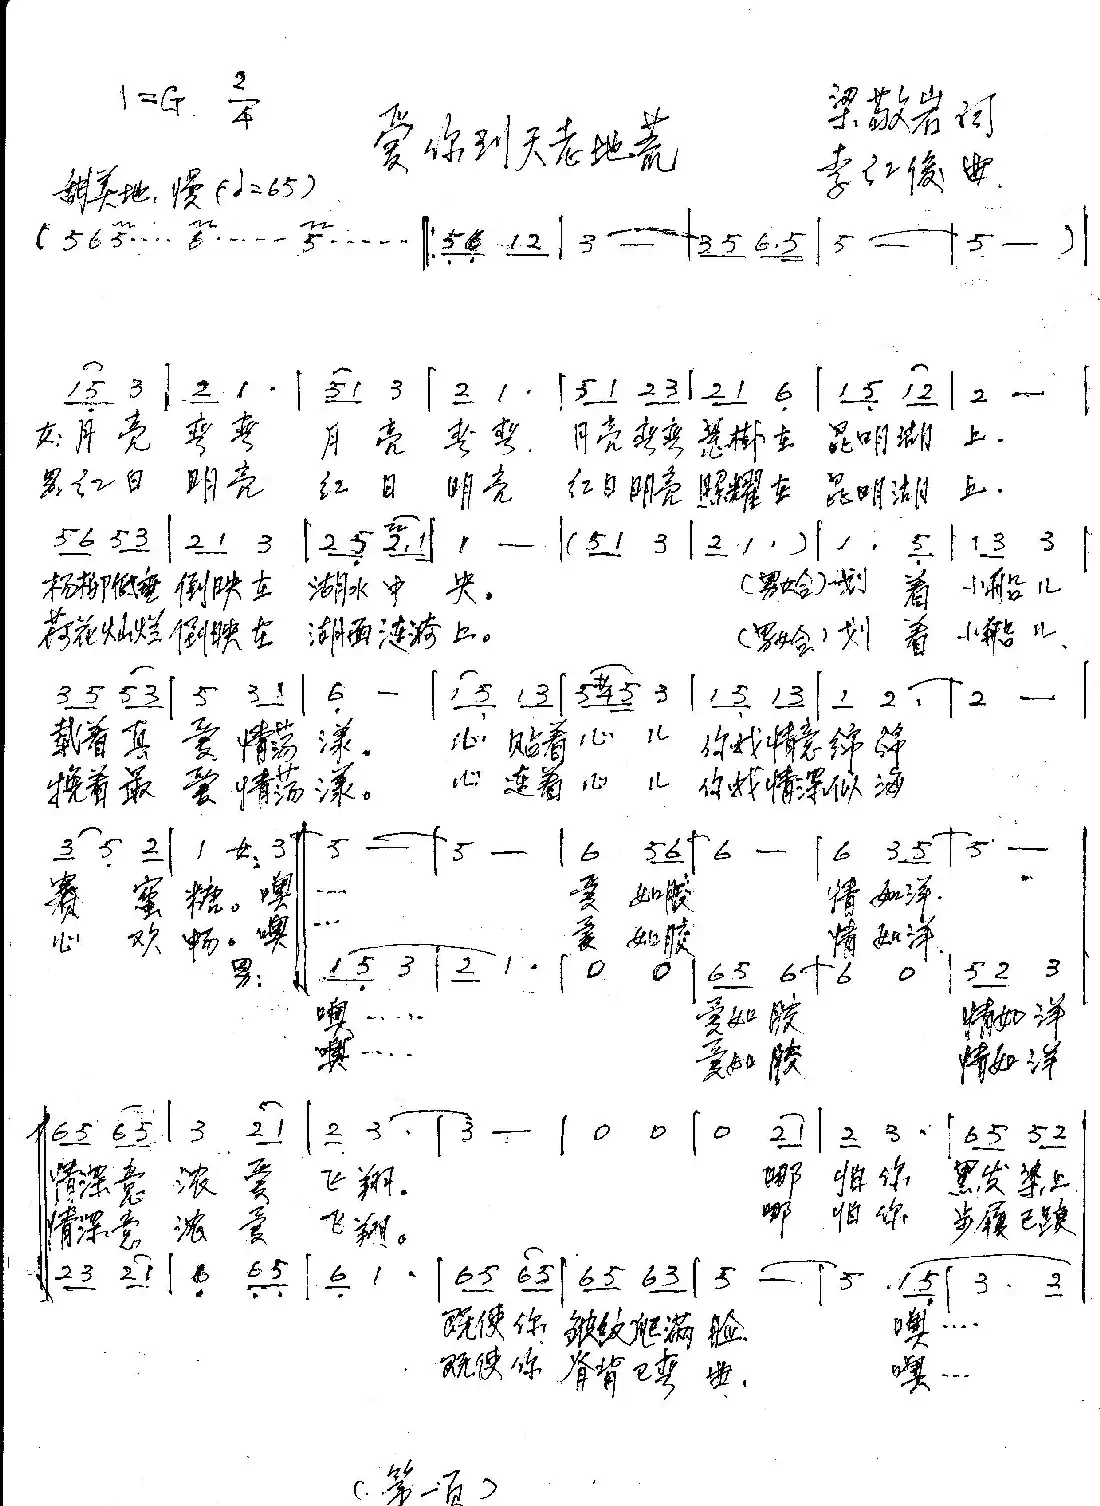 1=G 2/4
爱你到天老地荒
梁敬岩词
李红俊曲
甜美地、慢(♩=65)
(565···· 6····· 5····· ‖: 56 12 | 3 — | 35 6·5 | 5 — | 5 — ) |
15 3 | 2 1 · | 51 3 | 2 1 · | 51 23 | 21 6 | 15 12 | 2 — |
女: 月亮 弯弯 月亮 弯弯 月亮弯弯悬掛在 昆明湖上.
男: 红日 明亮 红日 明亮 红日明亮照耀在 昆明湖上.
56 53 | 21 3 | 25 2·1 | 1 — | (51 3 | 21· ) | 1 · 5 | 13 3 |
杨柳低垂 倒映在 湖水中央。 (男女合)划着小船儿
荷花灿烂倒映在 湖面涟漪上。 (男女合)划着小船儿
35 53 | 5 31 | 6 — | 15 13 | 5#45 3 | 15 13 | 1 2 · | 2 — |
载着真爱情荡漾。 心贴着心儿 你我情意绵绵
挽着最爱情荡漾。 心连着心儿 你我情深似海
3 5 2 | 1 女: 3 ‖ 5 — | 5 — | 6 56 | 6 — | 6 35 | 5 — |
赛蜜糖。噢 ··· 爱如胶 情如洋.
心欢畅。噢 ··· 爱如胶 情如洋.
男: 15 3 | 2 1 · | 0 0 | 65 6 | 6 0 | 52 3 |
噢···· 爱如胶 情如洋
噢···· 爱如胶 情如洋
65 65 | 3 21 | 2 3 · | 3 — | 0 0 | 0 21 | 2 3 · | 65 52 |
情深意浓爱飞翔. 哪怕你 黑发染上
情深意浓爱飞翔。 哪怕你 步履已踉
23 21 | 6 65 | 6 1 · | 65 65 | 65 63 | 5 — | 5 · 15 | 3 · 2 |
既使你 皱纹爬满脸 噢····
既使你 脊背已弯曲. 噢···
(第一页)